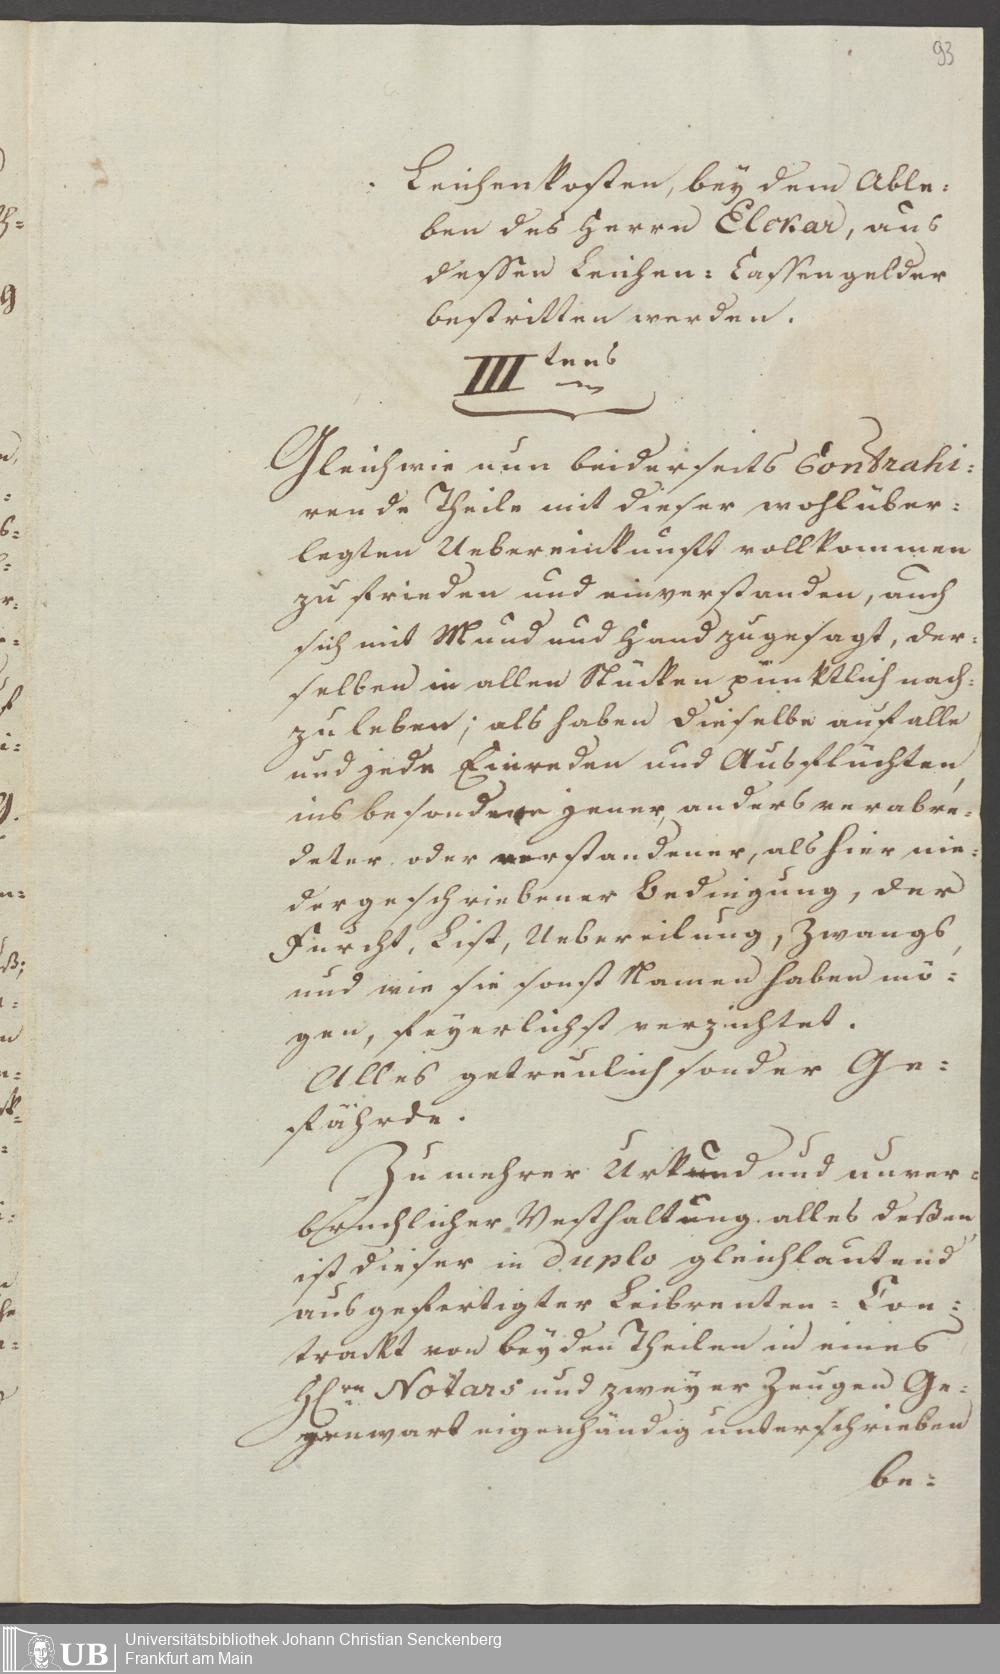 93
Leichenkosten, bey dem Able=
ben des Herrn Elckar, aus
dessen Leichen= Cassengelder
bestritten werden.
III tens
Gleichwie nun beiderseits Contrahi=
rende Theile mit dieser wohlüber=
legten Uebereinkunft vollkommen
zufrieden und einverstanden, auch
sich mit Mund und Hand zugesagt, der=
selben in allen Stücken pünktlich nach=
zuleben; als haben dieselbe auf alle
und jede Einreden und Ausflüchten,
insbesondere jener, anders verabre=
deter oder verstandener, als hier nie=
dergeschriebener Bedingung, der
Furcht, List, Uebereilung, Zwangs,
und wie sie sonst Namen haben mö=
gen, feyerlichst verzichtet.
Alles getreulich sonder Ge=
fährde.
Zu mehrer Urkund und unver=
bruchlicher Vesthaltung alles deßen,
ist dieser in duplo gleichlautend
ausgefertigter Leibrenten= Con=
trackt von beyden Theilen in eines
Hrn Notars und zweyer Zeugen Ge=
genwart eigenhändig unterschrieben
be=
UB
Universitätsbibliothek Johann Christian Senckenberg
Frankfurt am Main